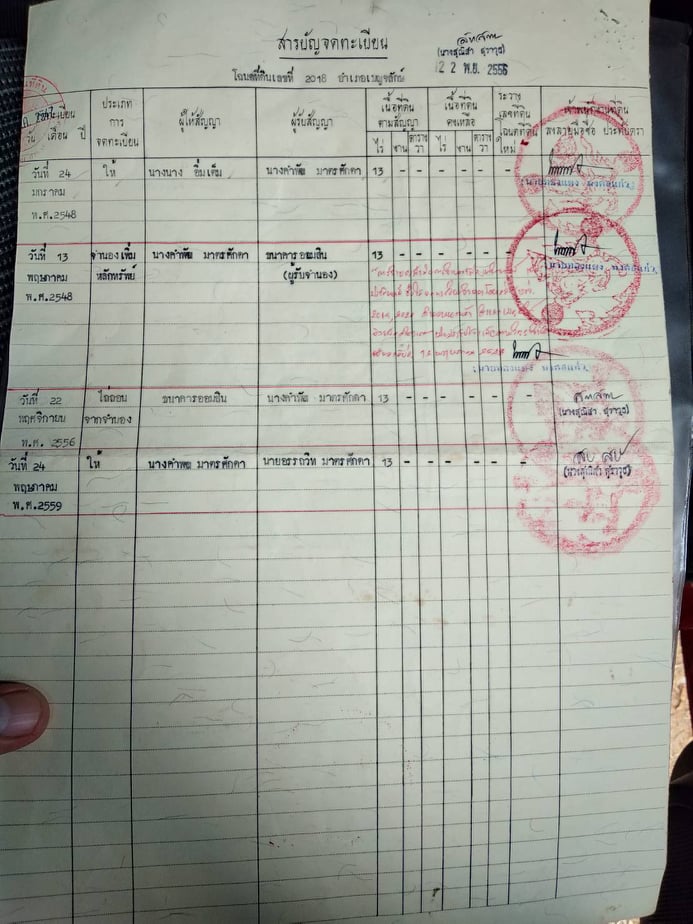 สารบัญจดทะเบียน
(นางสุณิสา สุราวุธ)
22 พ.ย. 2556
โฉนดที่ดินเลขที่ 2018 อำเภอเบญจลักษ์
จดทะเบียน วัน เดือน ปี
ประเภท การ จดทะเบียน
ผู้ให้สัญญา
ผู้รับสัญญา
เนื้อที่ดิน ตามสัญญา
ไร่ งาน ตารางวา
เนื้อที่ดิน คงเหลือ
ไร่ งาน ตารางวา
ระวาง เลขที่ดิน โฉนดที่ดิน ใหม่
เจ้าพนักงานที่ดิน ลงลายมือชื่อ ประทับตรา
วันที่ 24 ให้ นางนาง อิ่มเต็ม นางคำพัน มาตรศักดา 13 - - - - - -
มกราคม
พ.ศ.2548
วันที่ 13 จำนองเพิ่ม นางคำพัน มาตรศักดา ธนาคารออมสิน 13 - - - - - -
พฤษภาคม หลักทรัพย์ (ผู้รับจำนอง)
พ.ศ.2548
วันที่ 22 ไถ่ถอน ธนาคารออมสิน นางคำพัน มาตรศักดา 13 - - - - - -
พฤศจิกายน จากจำนอง (นางสุณิสา สุราวุธ)
พ.ศ. 2556
วันที่ 24 ให้ นางคำพัน มาตรศักดา นายอรรถวิท มาตรศักดา 13 - - - - - -
พฤษภาคม (นางสุณิสา สุราวุธ)
พ.ศ.2559